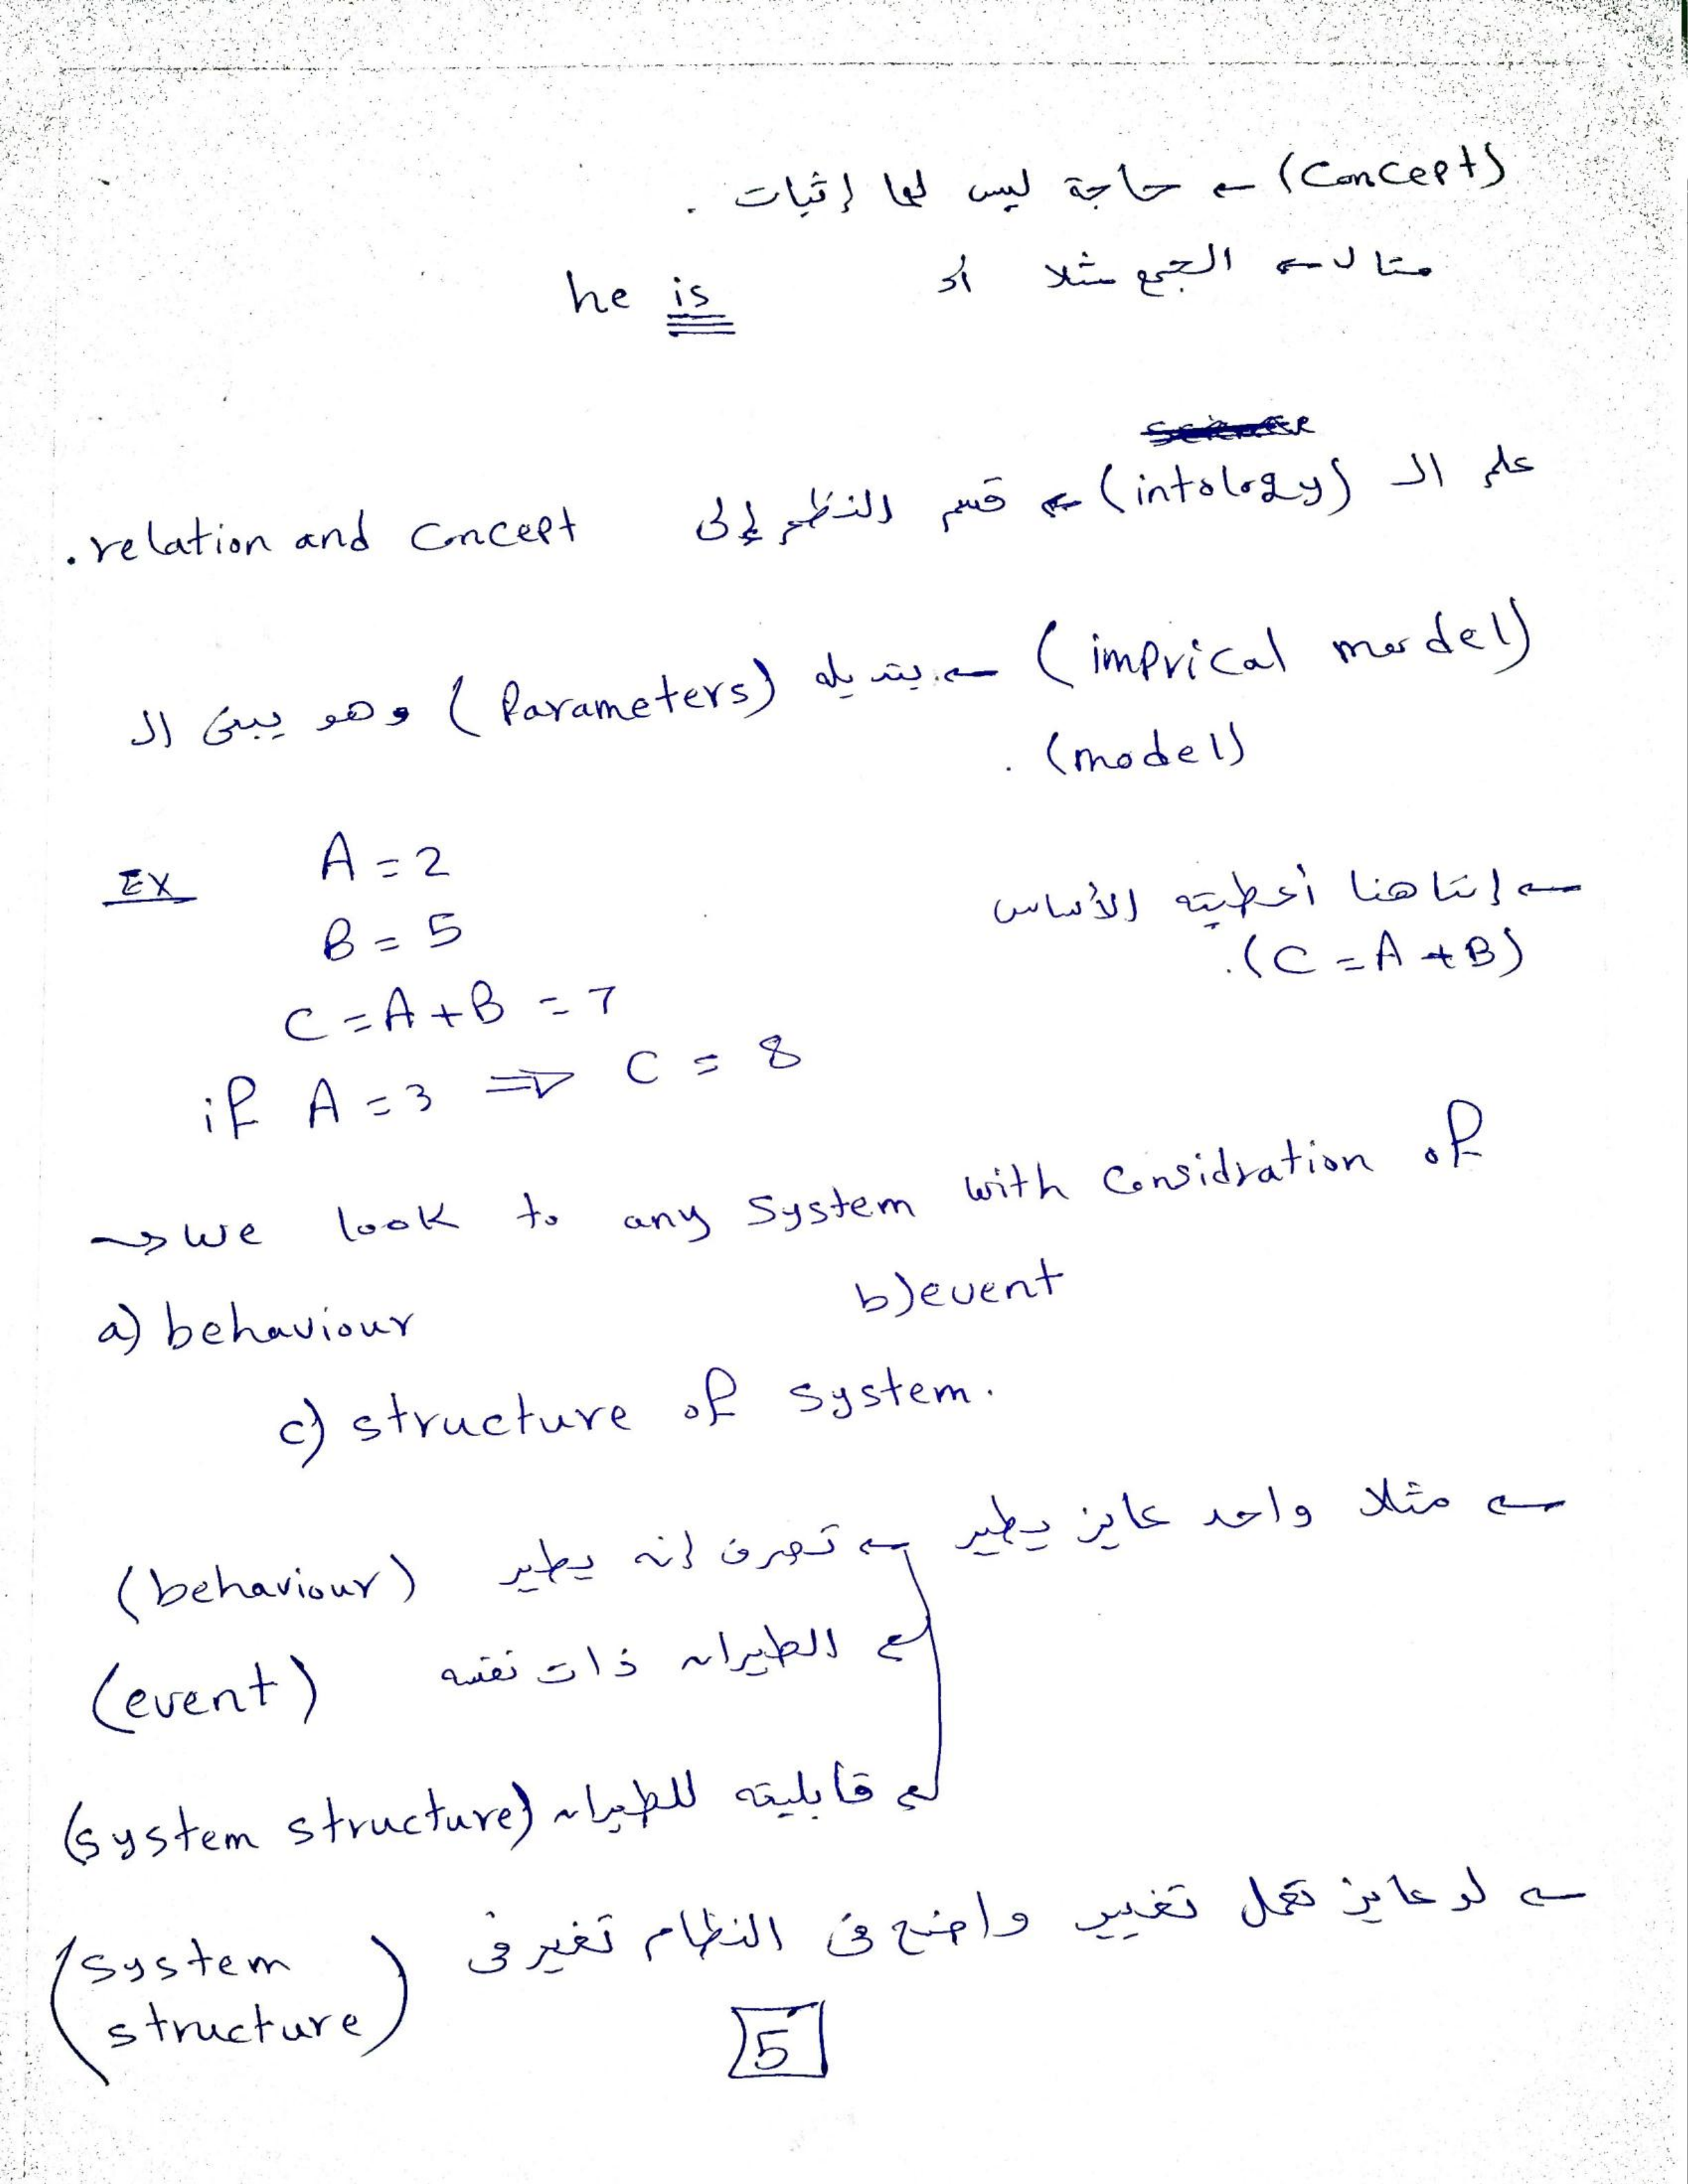 (Concept) ← حاجة ليس لها إثبات .
مثال ← الجمع مثلا أو he is
علم الـ (intology) ← قسم النظم إلى relation and concept .
(imprical model) ← بتديله (Parameters) وهو يبنى الـ
(model) .
← إنتا هنا أعطيته الأساس
(C = A + B).
EX A = 2
B = 5
C = A + B = 7
if A = 3 ⇒ C = 8
→ we look to any system with considration of
a) behaviour b) event
c) structure of system.
← مثلا واحد عايز يطير ← تعرف إنه يطير (behaviour)
← الطيران ذات نفسه (event)
← قابليته للطيران (system structure)
← لو عايز تعمل تغيير واضح فى النظام تغير فى (system
structure)
5